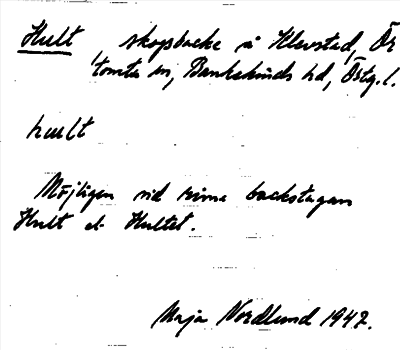 Hult skogsbacke å Klevstad, Ör
tomta sn, Bankekinds hd, Östg. l.
hult
Möjligen vid backstugan
Hult el. Hultet.
Maja Nordlund 1947.